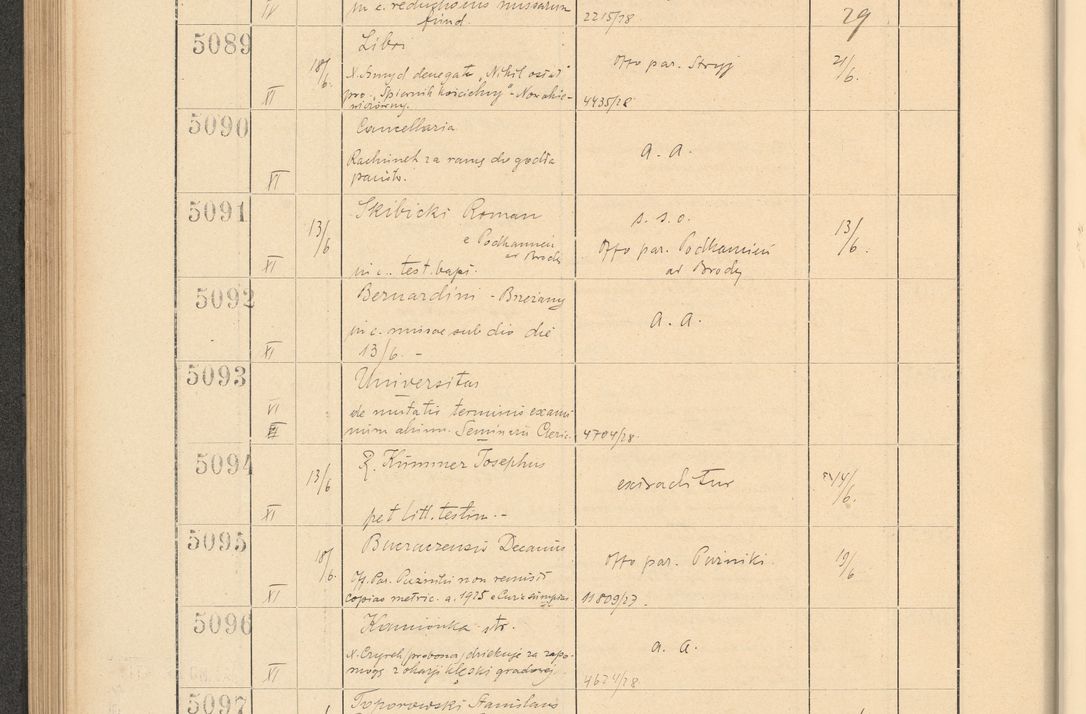 IV in c. reductionis missarum
fund. 2215/28 29
5089 Libri
18/6. X. Szmyd denegat „Nihil ostat" Offo par. Stryj 21/6.
XI pro „Śpiewnik kościelny" - Nowakie-
wiczówny. 4435/28
5090 Cancellaria
Rachunek za ramę do godła a. a.
XI państw.
5091 Skibicki Roman s. s. o.
13/6 e Podkamień Offo par. Podkamień 13/6.
ad Brody ad Brody
XI in c. test. bapt.
5092 Bernardini - Brzeżany
in c. missae sub dio die a. a.
XI 13/6. -
5093 Universitas
VI de mutatis terminis exami
num alumn. Seminarii Cleric. 4704/28.
5094 R. Kümmer Josephus
13/6 extraditur 14/6.
XI pet litt. testim. -
5095 Buczaczensis Decanus
18/6. Off. Par. Puźniki non remisit Offo par. Puźniki 19/6
XI copias metric. a. 1925 11809/27.
5096 Kamionka str.
X. Czyrek proboszcz dziękuje za zapo- a. a.
XI mogę z okazji klęski gradowej. 4624/28
5097 Toporowski Stanislaus